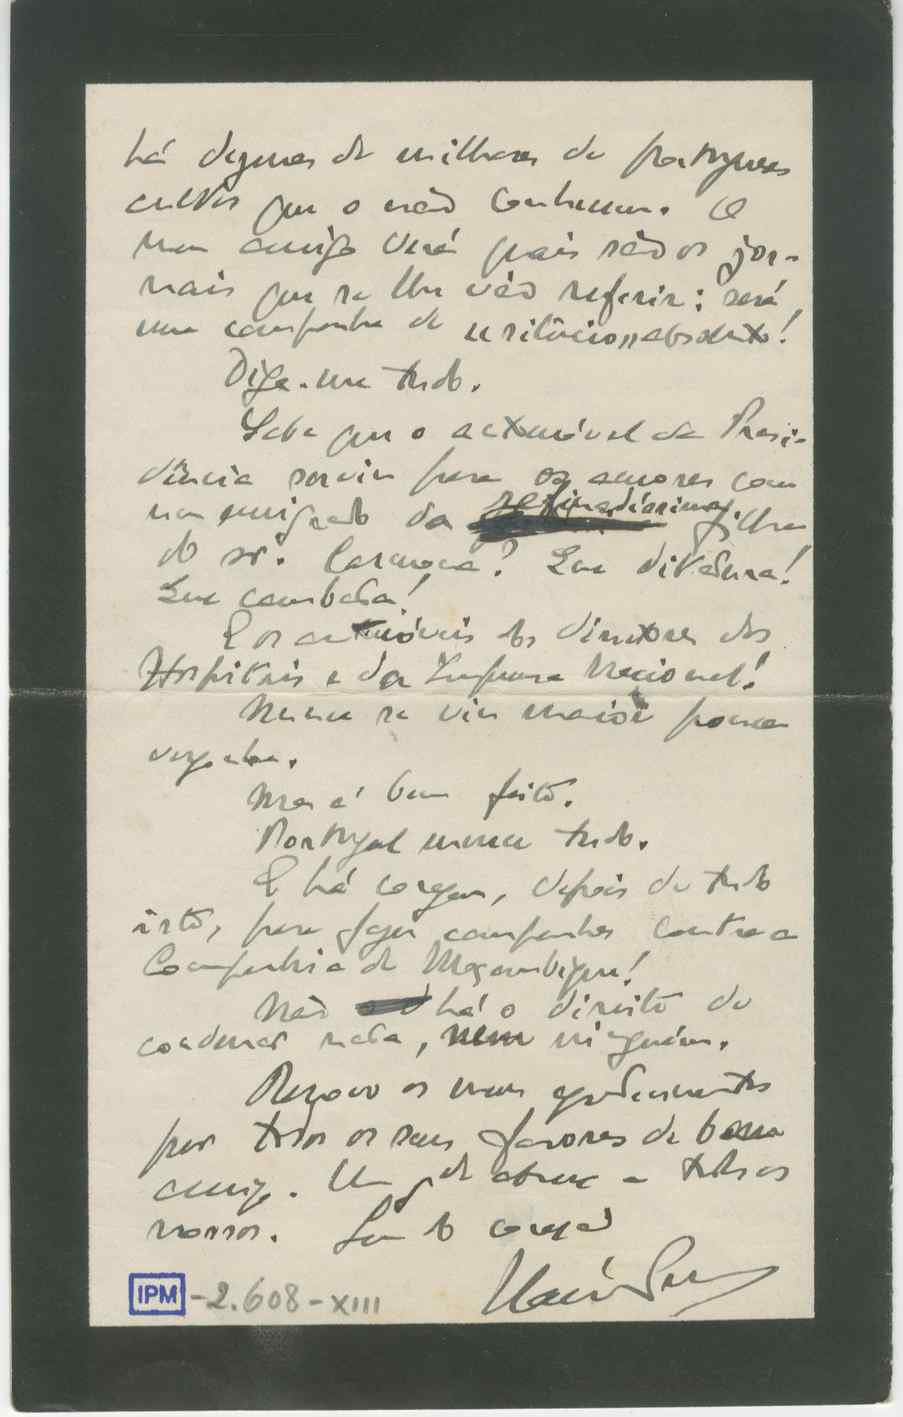 há dezenas de milhares de portugueses
cultos que o não conhecem. O
meu amigo verá quais são os jor-
nais que se lhe vão referir: será
uma campanha de "silêncio" absoluto!
Diga-me tudo.
Sabe que o automóvel da Presi-
dência serviu para os amores com
um emigrado da filha
do sr. Carmona? Que ditadura!
Que cambada!
E os automóveis dos directores dos
Hospitais e da Imprensa Nacional!
Nunca se viu maior pouca
vergonha.
Mas é bem feito.
Portugal merece tudo.
E há coragem, depois de tudo
isto, para fazer campanhas contra a
Companhia de Moçambique!
Não há o direito de
condenar nada, nem ninguém.
Renovo os meus agradecimentos
por todos os seus favores de bom
amigo. Um gde abraço a todos os
nossos. Seu do coração
IPM-2.608-XIII